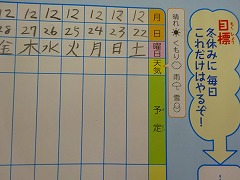 12 12 12 12 12 12 12 月
28 27 26 25 24 23 22 日
金 木 水 火 月 日 土 曜日
天気
予定
晴れ くもり 雨 雪
目標
冬休みに毎日
これだけはやるぞ!